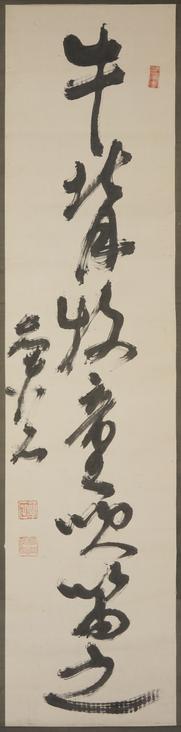 牛背牧童吹笛之